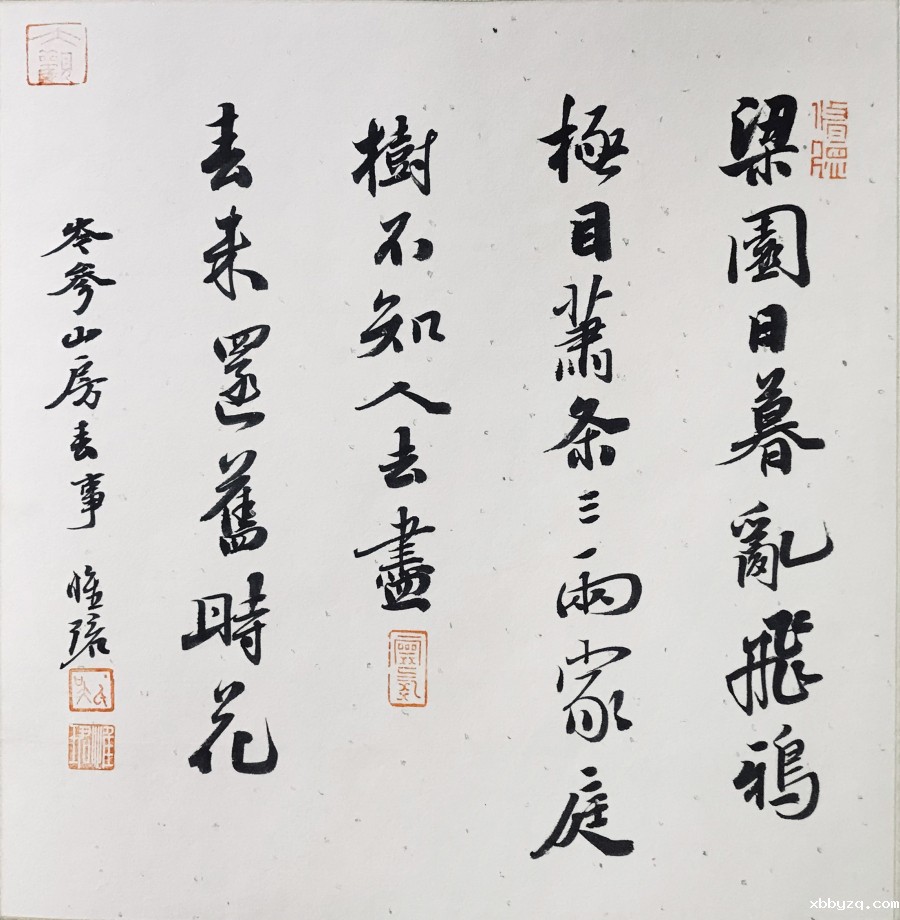 梁園日暮亂飛鴉
極目蕭条三兩家庭
樹不知人去盡
春来還舊時花
岑參山房春事
大觀
xbbyzq.com